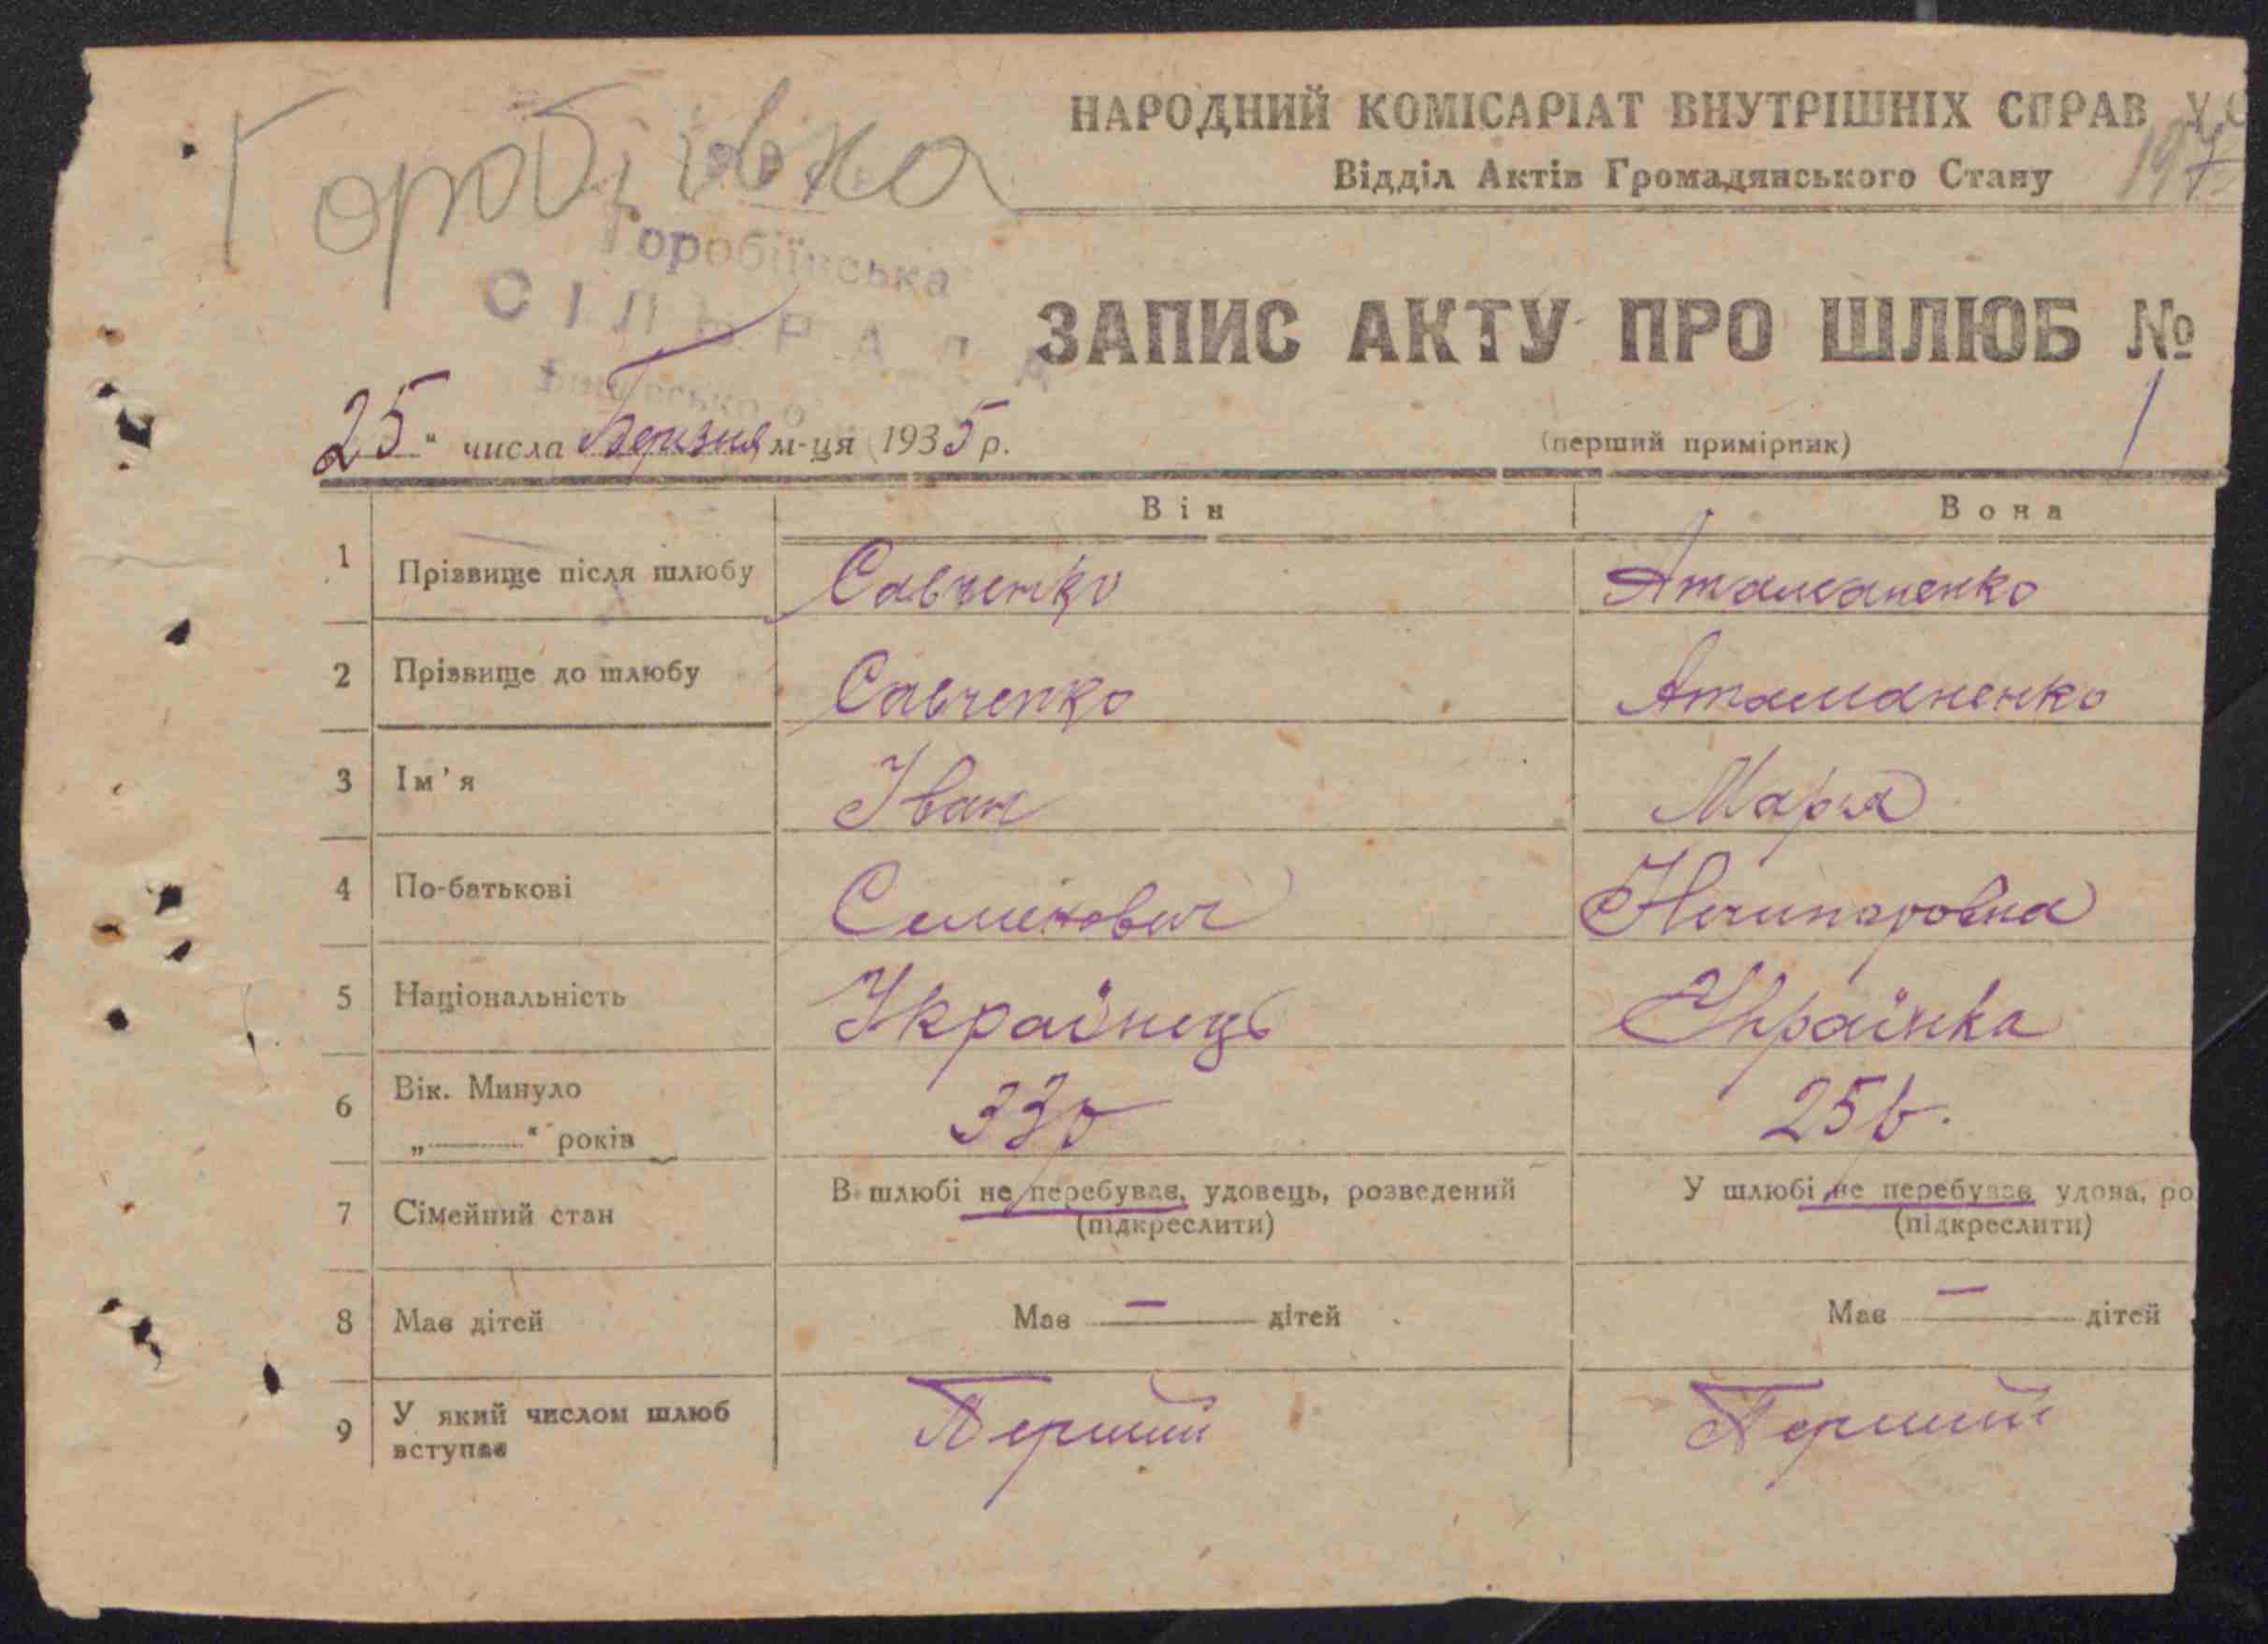 Горобіівка
НАРОДНИЙ КОМІСАРІАТ ВНУТРІШНІХ СПРАВ
Відділ Актів Громадянського Стану
Горобіївська
СІЛЬРАДА
ЗАПИС АКТУ ПРО ШЛЮБ №
25 " числа Березня м-ця 1935 р.
(перший примірник) 1
Він Вона
1 Прізвище після шлюбу Савченко Атаманенко
2 Прізвище до шлюбу Савченко Атаманенко
3 Ім'я Іван Марія
4 По-батькові Семенович Ничипоровна
5 Національність Українець Українка
6 Вік. Минуло 33 р 25 р.
„———" років
7 Сімейний стан В шлюбі не перебував, удовець, розведений У шлюбі не перебував удова, ро
(підкреслити) (підкреслити)
8 Має дітей Має — дітей Має — дітей
9 У який числом шлюб Перший Перший
вступає